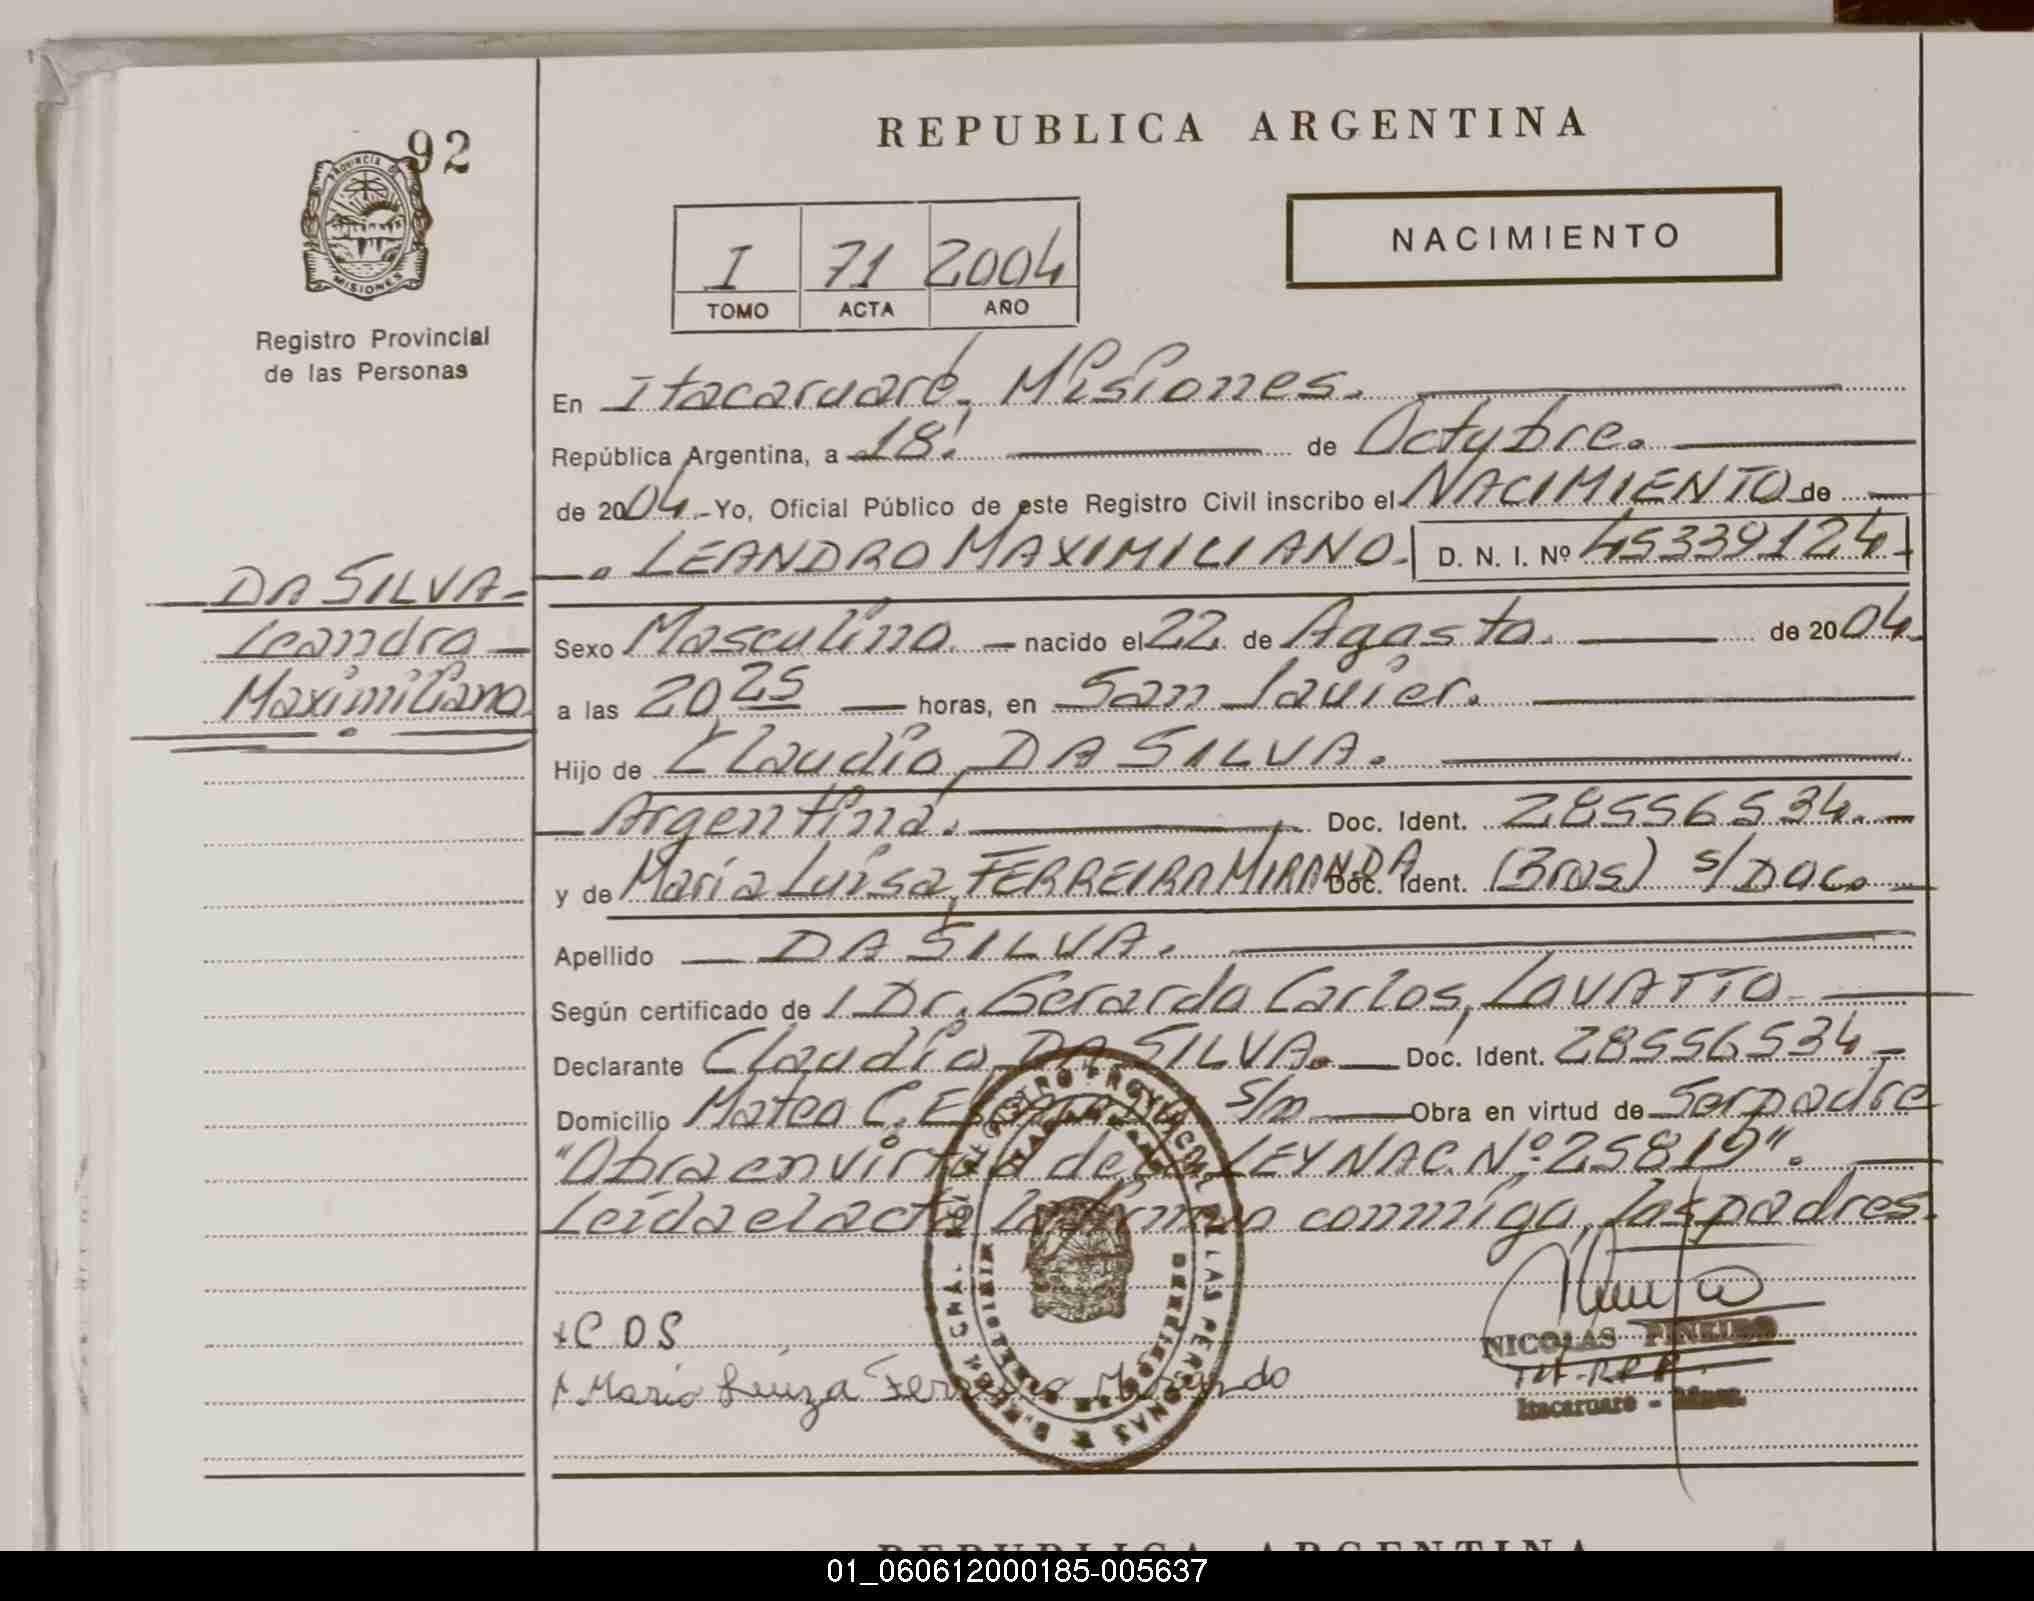 92
PROVINCIA DE
MISIONES
Registro Provincial
de las Personas
DA SILVA-
Leandro
Maximiliano
REPUBLICA ARGENTINA
I 71 2004
TOMO ACTA AÑO
NACIMIENTO
En Itacaruaré, Misiones.
República Argentina, a 18. de Octubre.
de 2004.-Yo, Oficial Público de este Registro Civil inscribo el NACIMIENTO de
LEANDRO MAXIMILIANO. D. N. I. Nº 45339124
Sexo Masculino. nacido el 22 de Agosto. de 2004.
a las 20,25 horas, en San Javier.
Hijo de Claudio, DA SILVA.
Argentina. Doc. Ident. 28556534.
y de María Luisa, FERREIRA MIRANDA Doc. Ident. (Bras) s/Doc.
Apellido DA SILVA.
Según certificado de Dr. Gerardo Carlos, LAVATTO
Declarante Claudio DA SILVA. Doc. Ident. 28556534
Domicilio Mateo C. s/n Obra en virtud de Ser padre
"Obra en virtud de la LEY NAC. Nº 25819".
Leída el acta la firman conmigo, los padres.
REGISTRO PROVINCIAL DE LAS PERSONAS
C D S
NICOLAS PINEIRO
Itacaruare -
María Luiza Ferreira Miranda
REPUBLICA ARGENTINA
01_060612000185-005637